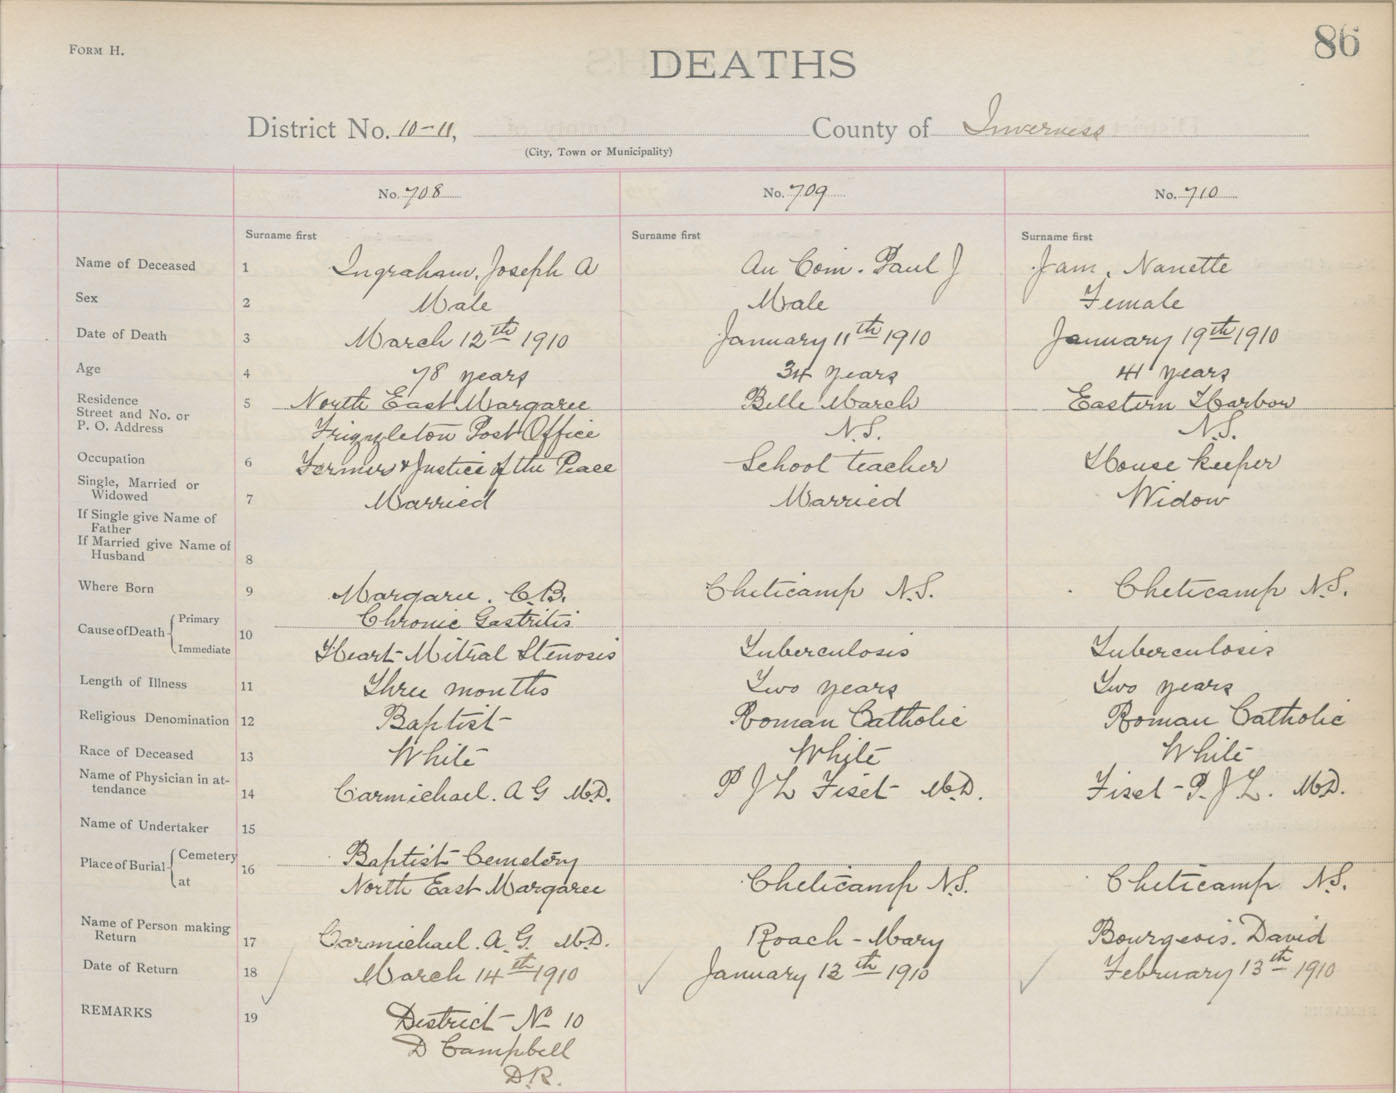 FORM H.
86
DEATHS
District No. 10-11, County of Inverness
(City, Town or Municipality)
No. 708 No. 709 No. 710
Surname first Surname first Surname first
Name of Deceased 1 Ingraham, Joseph A Au Com. Paul J Jam, Nanette
Sex 2 Male Male Female
Date of Death 3 March 12th 1910 January 11th 1910 January 19th 1910
Age 4 78 years 34 years 41 years
Residence 5 North East Margaree Belle March Eastern Harbor
Street and No. or
P. O. Address Frizzleton Post Office N.S. N.S.
Occupation 6 Farmer & Justice of the Peace School teacher House keeper
Single, Married or
Widowed 7 Married Married Widow
If Single give Name of
Father
If Married give Name of
Husband 8
Where Born 9 Margaree. C.B. Cheticamp N.S. Cheticamp N.S.
Cause of Death Primary 10 Chronic Gastritis
Immediate Heart-Mitral Stenosis Tuberculosis Tuberculosis
Length of Illness 11 Three months Two years Two years
Religious Denomination 12 Baptist Roman Catholic Roman Catholic
Race of Deceased 13 White White White
Name of Physician in at-
tendance 14 Carmichael. A G M.D. P J L Fiset M.D. Fiset - P. J L. M.D.
Name of Undertaker 15
Place of Burial Cemetery 16 Baptist Cemetery
at North East Margaree Cheticamp N.S. Cheticamp N.S.
Name of Person making
Return 17 Carmichael. A. G. M.D. Roach - Mary Bourgeois. David
Date of Return 18 March 14th 1910 January 12th 1910 February 13th 1910
REMARKS 19 District No 10
D Campbell
D.R.